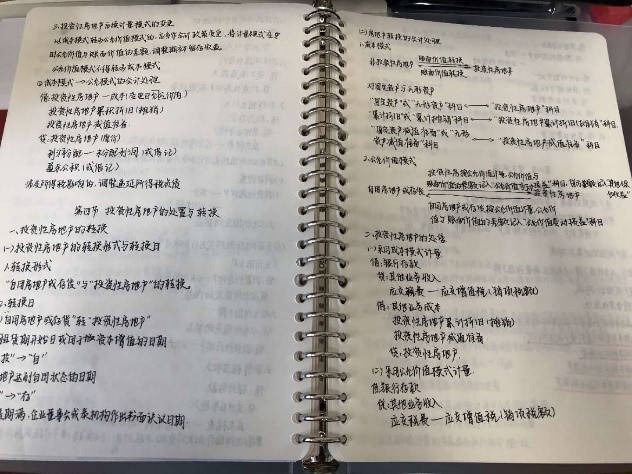 三、投资性房地产后续计量模式的变更
以成本模式转为公允价值模式的,应当作为会计政策变更,将计量模式变更
时公允价值与账面价值的差额,调整期初留存收益
公允价值模式不得转为成本模式
成本模式→公允模式的会计处理
借:投资性房地产—成本(变更日公允价值)
投资性房地产累积折旧(摊销)
投资性房地产减值准备
贷:投资性房地产(原价)
利润分配—未分配利润(或借记)
盈余公积(或借记)
涉及所得税影响的,调整递延所得税负债
第四节 投资性房地产的处置与转换
一、投资性房地产的转换
(一)投资性房地产的转换形式与转换日
1.转换形式
“自用房地产或存货”与“投资性房地产”的转换
转换日
自用房地产或存货”转“投资性房地产”
租赁期开始日或用于资本增值的日期
投”→“自”
地产达到自用状态的日期
”→“存”
期满,企业董事会或类似机构作出书面决议日期
(二)房地产转换的会计处理
1.成本模式
非投资性房地产 账面价值转换 投资性房地产
账面价值转换
对固定资产与无形资产
“固定资产”或“无形资产”科目 ←→ “投资性房地产”科目
累计折旧”或“累计摊销”科目 ←→ “投资性房地产累计折旧(或摊销)”科目
“固定资产减值准备”或“无形
资产减值准备”科目 ←→ “投资性房地产减值准备”科目
2.公允价值模式
投资性房地产按公允价值计量,公允价值与
自用房地产或存货 投资性房地产
自用房地产或存货按公允价值计量,公允价
值与账面价值的差额记入“公允价值变动损益”科目
二、投资性房地产的处置
(一)采用成本模式计量
借:银行存款
贷:其他业务收入
应交税费—应交增值税(销项税额)
借:其他业务成本
投资性房地产累计折旧(摊销)
投资性房地产减值准备
贷:投资性房地产
(二)采用公允价值模式计量
借:银行存款
贷:其他业务收入
应交税费—应交增值税(销项税额)